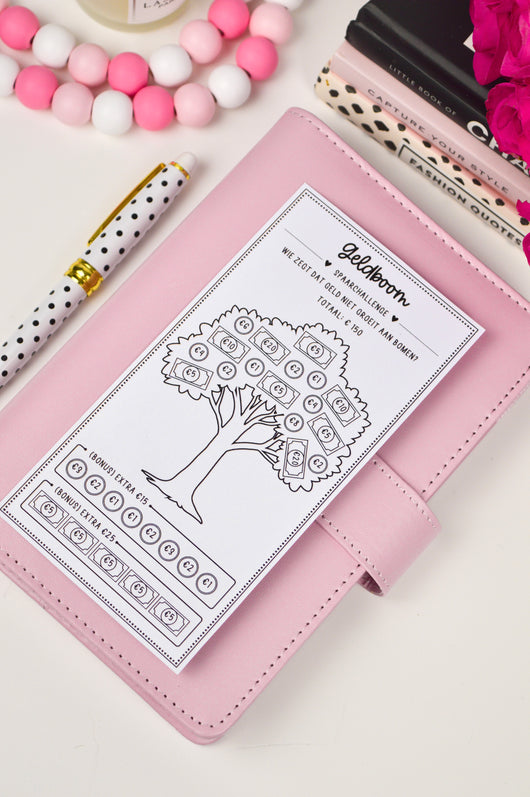 LITTLE BOOK OF
CAPTURE YOUR STYLE
FASHION QUOTES
geldboom
SPAARCHALLENGE
WIE ZEGT DAT GELD NIET GROEIT AAN BOMEN?
TOTAAL: € 150
€6
€20
€5
€10
€2
€4
€2
€2
€1
€5
€5
€1
€2
€10
€3
€4
€5
€3
€2
€20
€2
(BONUS) EXTRA €15
€3
€2
€1
€1
€2
€3
€2
€1
(BONUS) EXTRA €25
€5
€5
€5
€5
€5